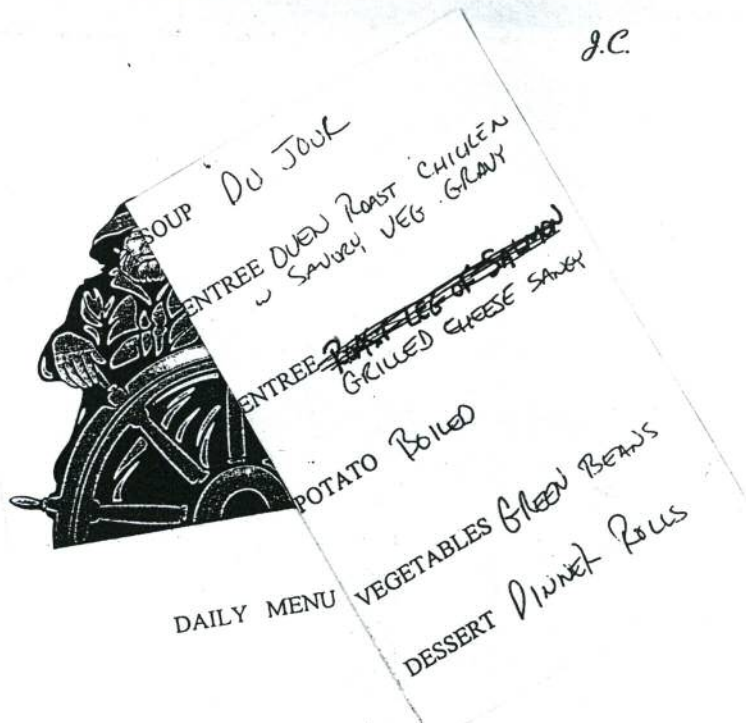 J.C.
SOUP DU JOUR
ENTREE OVEN ROAST CHICKEN
W SAVORY VEG. GRAVY
ENTREE ROAST LEG OF SALMON
GRILLED CHEESE SANGY
POTATO BOILED
VEGETABLES GREEN BEANS
DESSERT DINNER ROLLS
DAILY MENU